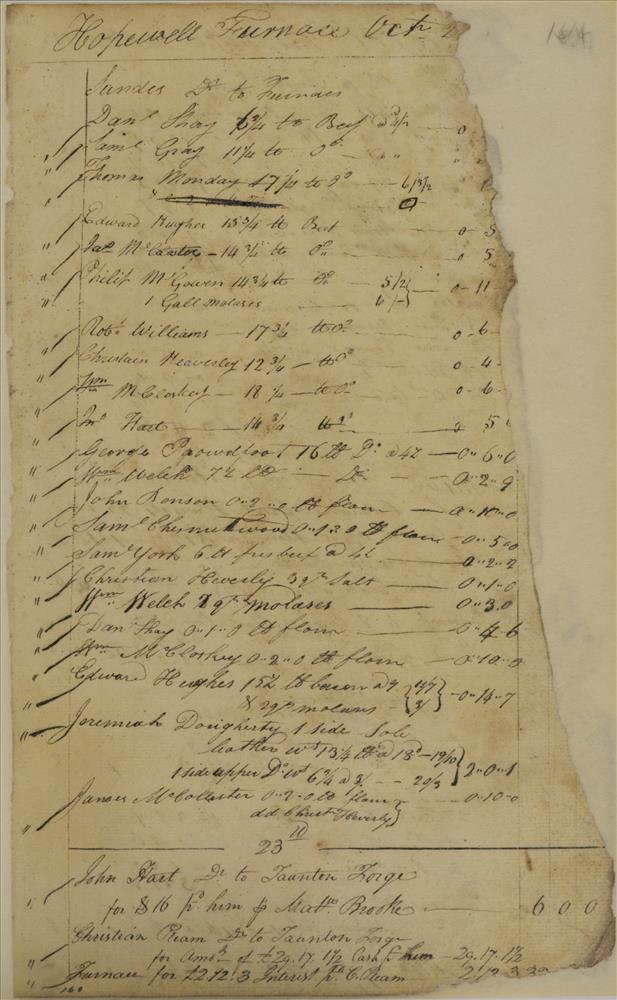 Hopewell Furnace Octr
Sundes Dr to Furnace
Danl Shay 6 3/4 tb Beef a 4 1/2 — 0
Saml Gray 11 1/4 tb Do — " "
Thomas Monday 17 1/4 tb Do — 6/5 1/2
Edward Hughes 15 3/4 tb Beef 0 - 5
Jas McCaster — 14 3/4 tb Do 0 5
Philip McGowen 14 3/4 tb Do 5/2 } 0 - 11
1 Gall Molases 6/- }
Robt Williams — 17 3/4 tb Do 0 - 6
Christain Heaverley 12 3/4 — tb Do 0 - 4
Wm McCloskey — 18 1/4 — tb Do 0 - 6
Jno Hart — 14 3/4 tb Do 0 5
George Prowdfoot 16 tb Do a 4 1/2 — 0 " 6 " 0
Wm Welch 7 1/2 tb — Do — 0 " 2 " 9
John Bonson 0 " 2 " 0 tb flour — 0 " 10 " 0
Saml Chesnutwood 0 " 1 " 0 tb flour — 0 " 5 " 0
Saml York 6 tb fresbeef a 4 1/2 — 0 " 2 " 2
Christian Heverly 3 qts Salt — 0 " 1 " 0
Wm Welch 2 qts molases — 0 " 3 " 0
Danl Shay 0 " 1 " 0 tb flour — 0 " 4 " 6
Wm McCloskey 0 " 2 " 0 tb flour — 0 " 10 " 0
Edward Hughes 15 1/2 tb bacon a 9 { 11/7 } 0 " 14 " 7
& 2 qts molases — { 3/ }
Jeremiah Dougherty 1 side Sole
leather wt 13 1/4 tb a 18d — 19/10 }
1 side upper Do wt 6 3/4 a 3/ — 20/3 } 2 " 0 " 1
James McCollester 0 " 2 " 0 tb flour } 0 " 10 " 0
dd Christn Heverly }
23rd
John Hart Dr to Taunton Forge
for $16 pd him p Matts Brooke — 6 0 0
Christian Ream Dr to Taunton Forge
for Amot of £29.17.1 1/2 Cash p him — 29.17.1 1/2
Furnace for £2 12.3 Interest pd C. Ream 2 12 3